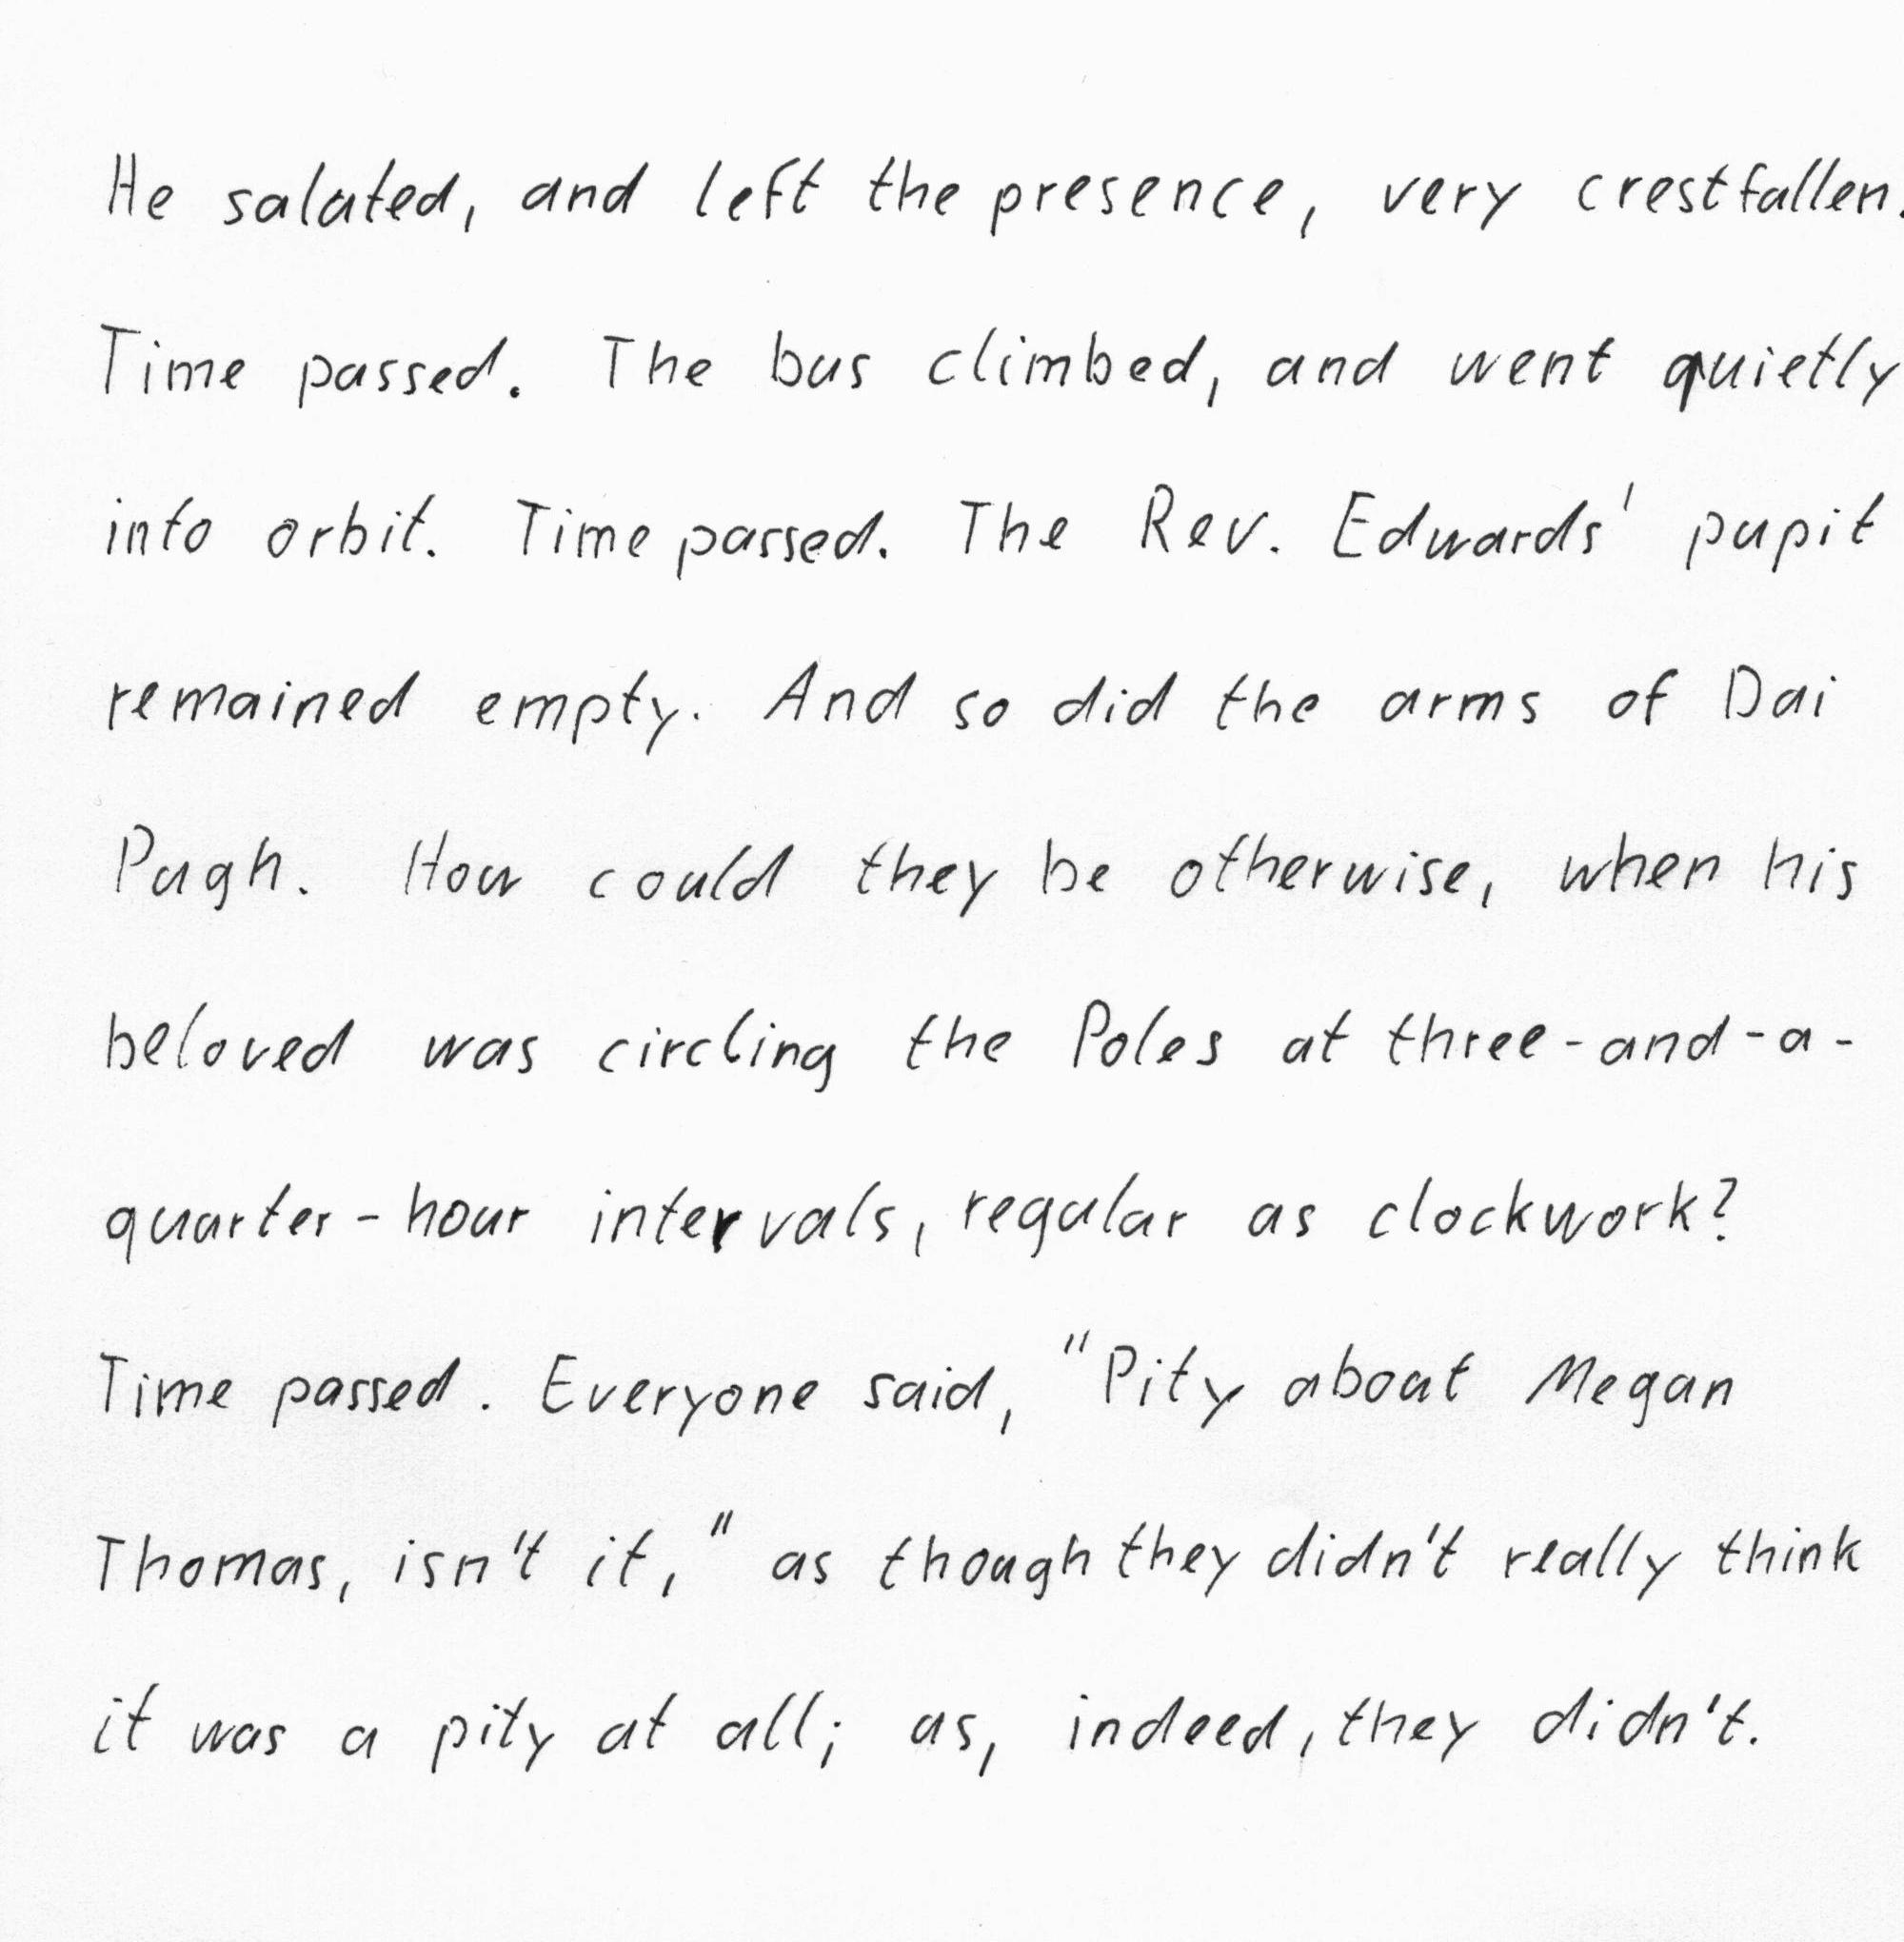 He saluted, and left the presence, very crestfallen.
Time passed. The bus climbed, and went quietly
into orbit. Time passed. The Rev. Edwards' pupit
remained empty. And so did the arms of Dai
Pugh. How could they be otherwise, when his
beloved was circling the Poles at three-and-a-
quarter-hour intervals, regular as clockwork?
Time passed. Everyone said, "Pity about Megan
Thomas, isn't it," as though they didn't really think
it was a pity at all; as, indeed, they didn't.